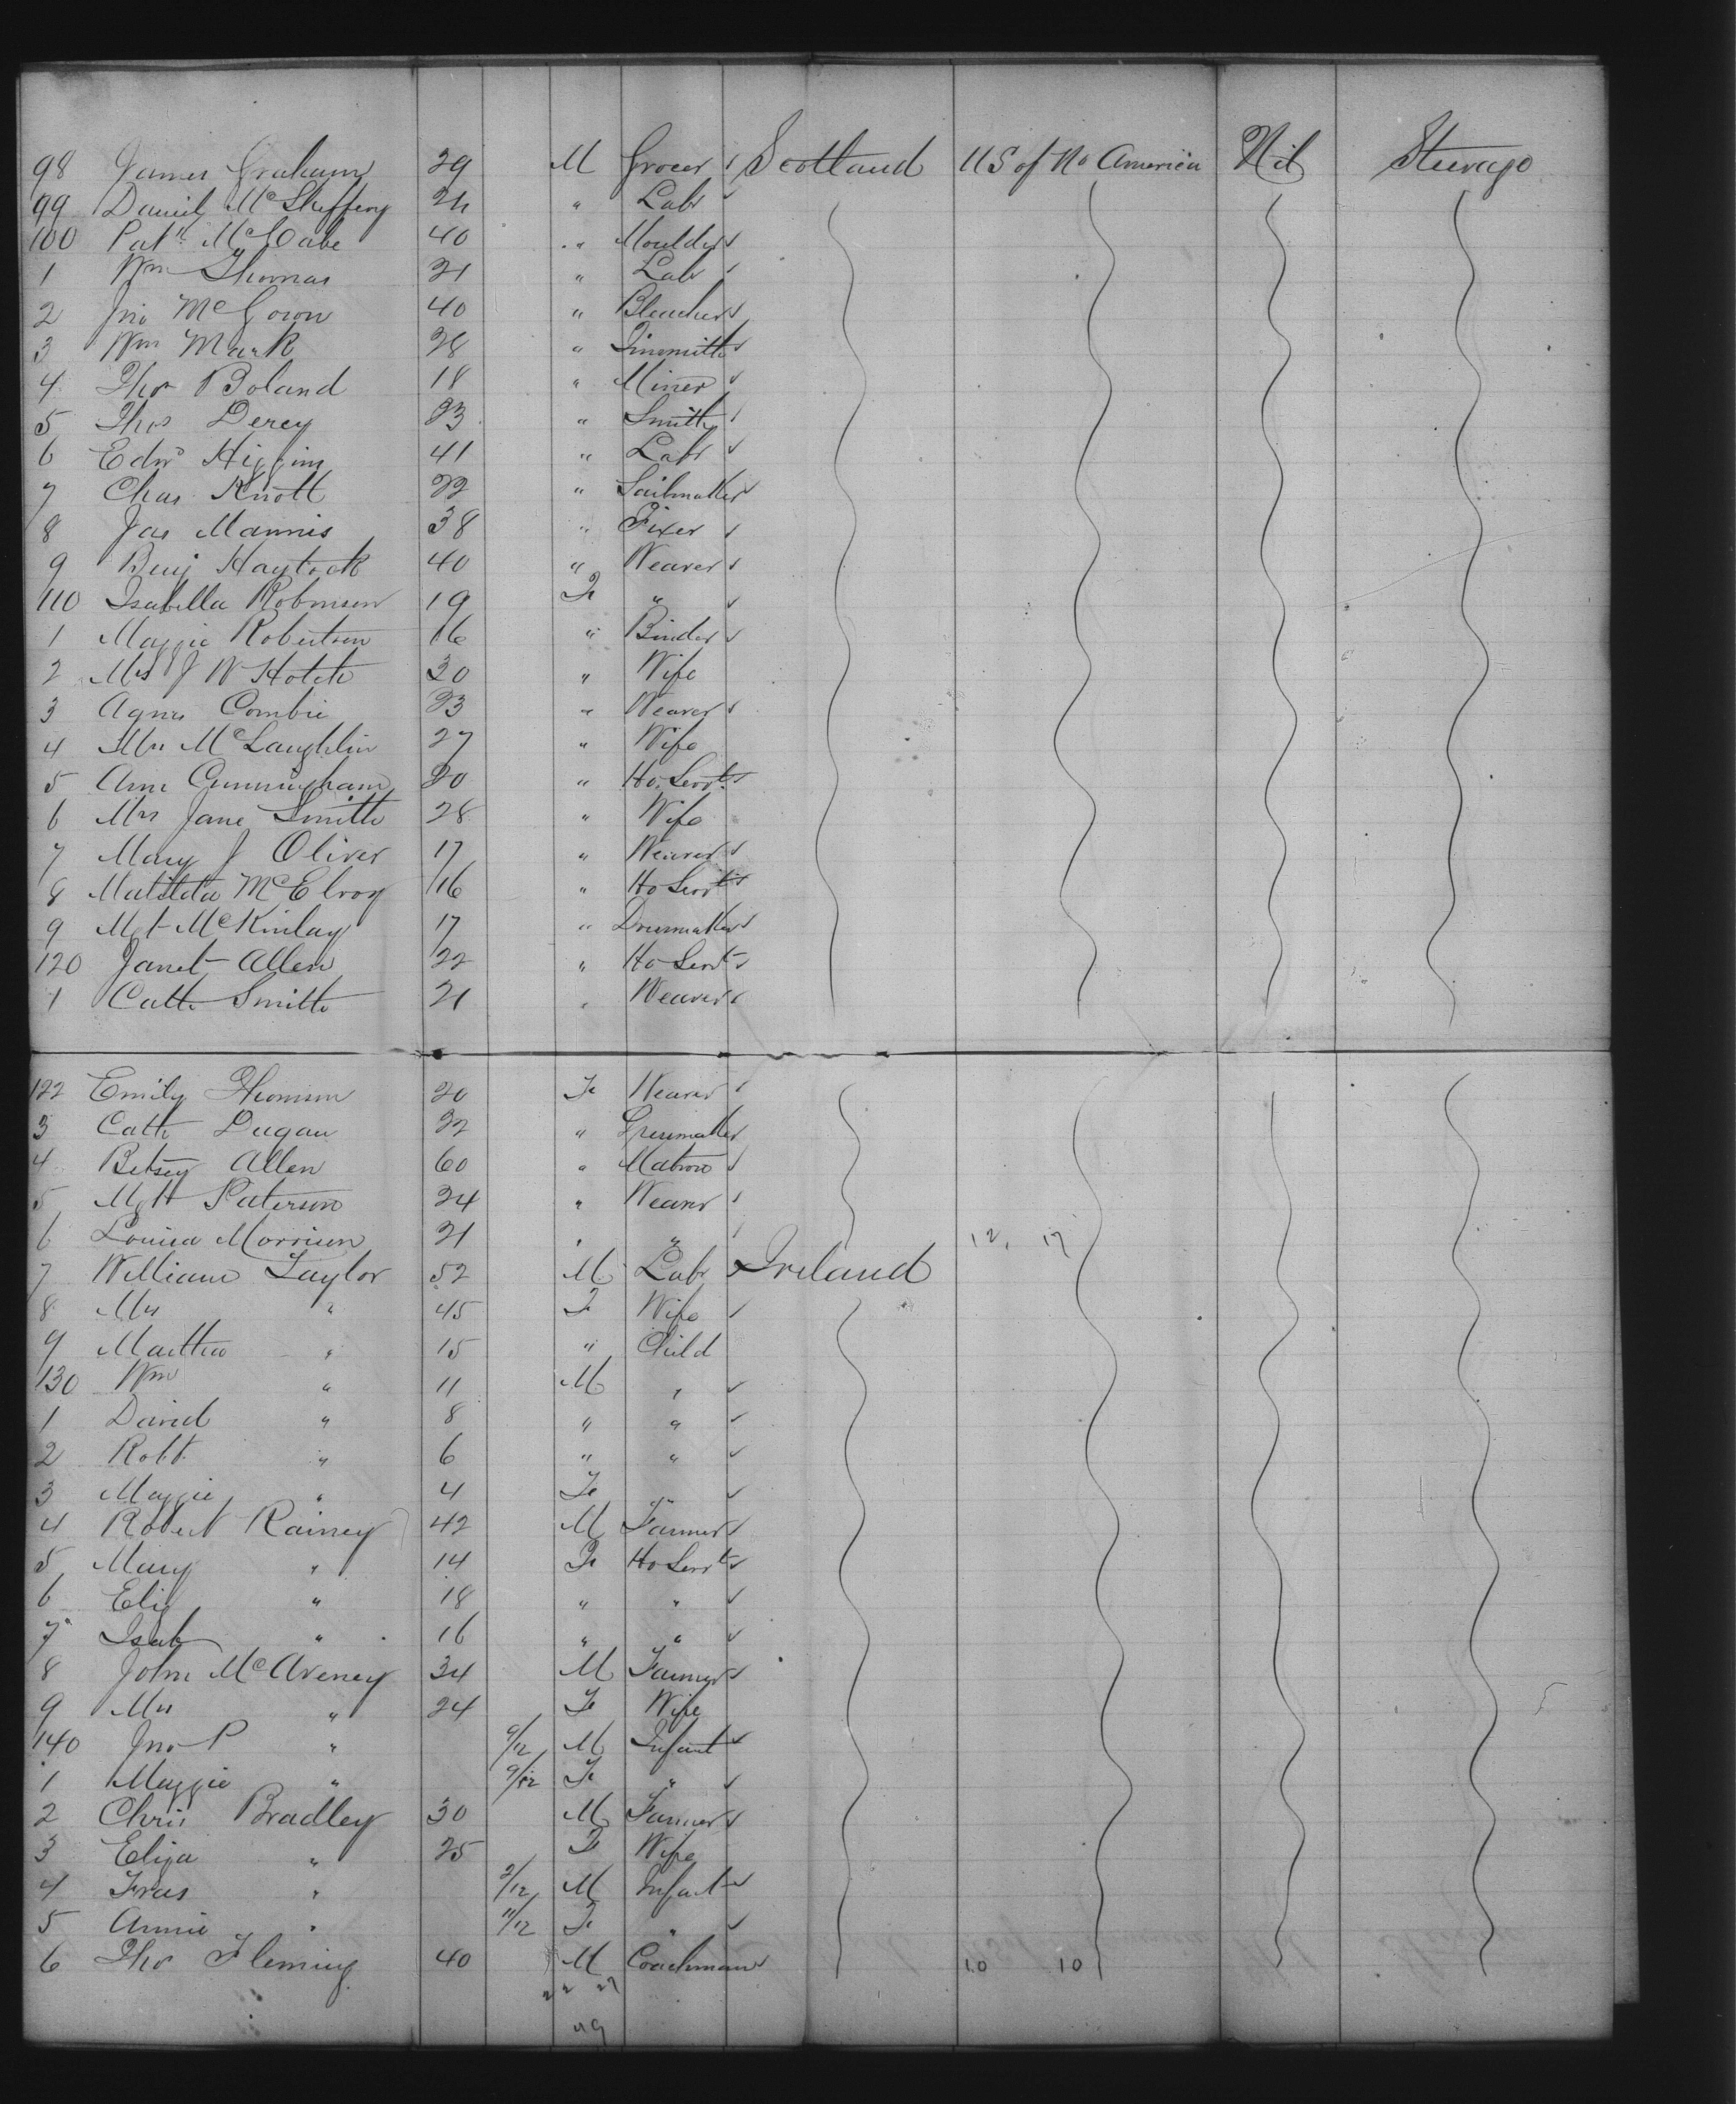 98 James Graham 29 M Grocer Scotland US of No America Nil Steerage
99 Daniel McSheffery 24 " Labr
100 Patk McCabe 40 " Moulder
1 Wm Thomas 21 " Labr
2 Jno McGown 40 " Bleacher
3 Wm Mark 28 " Tinsmith
4 Thos Boland 18 " Miner
5 Thos Derey 23 " Smith
6 Edwd Higgins 41 " Labr
7 Chas Knott 22 " Sailmaker
8 Jas Mannis 38 " Fixer
9 Benj Haytock 40 " Weaver
110 Isabella Robinson 19 Fe "
1 Maggie Robertson 16 " Binder
2 Mrs J W Hotch 30 " Wife
3 Agnes Combie 23 " Weaver
4 Mrs McLaughlin 27 " Wife
5 Ann Cunningham 20 " Ho. Servt
6 Mrs Jane Smith 28 " Wife
7 Mary J Oliver 17 " Weaver
8 Matilda McElroy 16 " Ho Servt
9 Mgt McKinlay 17 " Dressmaker
120 Janet Allen 22 " Ho Servt
1 Cath Smith 21 " Weaver
122 Emily Thomson 20 Fe Weaver
3 Cath Dugan 22 " Dressmaker
4 Betsey Allen 60 " Matron
5 Mgt Paterson 24 " Weaver
6 Louisa Morrison 21 " " 12, 17
7 William Taylor 52 M Labr Ireland
8 Mrs " 45 Fe Wife
9 Martha " 15 " Child
130 Wm " 11 M "
1 David " 8 " "
2 Robt " 6 " "
3 Maggie " 4 Fe "
4 Robert Rainey 42 M Farmer
5 Mary " 14 Fe Ho Servt
6 Eliz " 18 " "
7 Isab " 16 " "
8 John McAveney 34 M Farmer
9 Mrs " 24 Fe Wife
140 Jno P " 9/12 M Infant
1 Maggie " 9/12 Fe "
2 Chris Bradley 30 M Farmer
3 Eliza " 25 Fe Wife
4 Fras " 2/12 M Infant
5 Annie " 11/12 Fe "
6 Thos Fleming 40 M Coachman 10 10
22 27
49